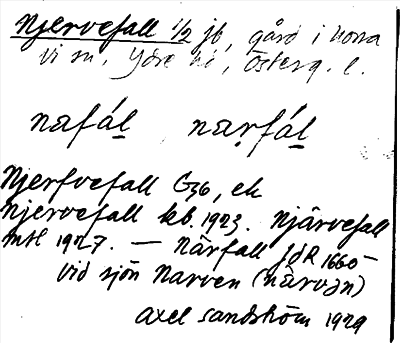 Njervefall 1/2 jb, gård i norra
Vi sn, Ydre hd, Österg. l.
nafál̲ naṛfál̲
Njerfvefall G36, ek
Njervefall kb. 1923. Njärvefall
mtl 1927. — Närfall JdR 1660 –
vid sjön Narven (nàrvən)
Axel Sandström 1929